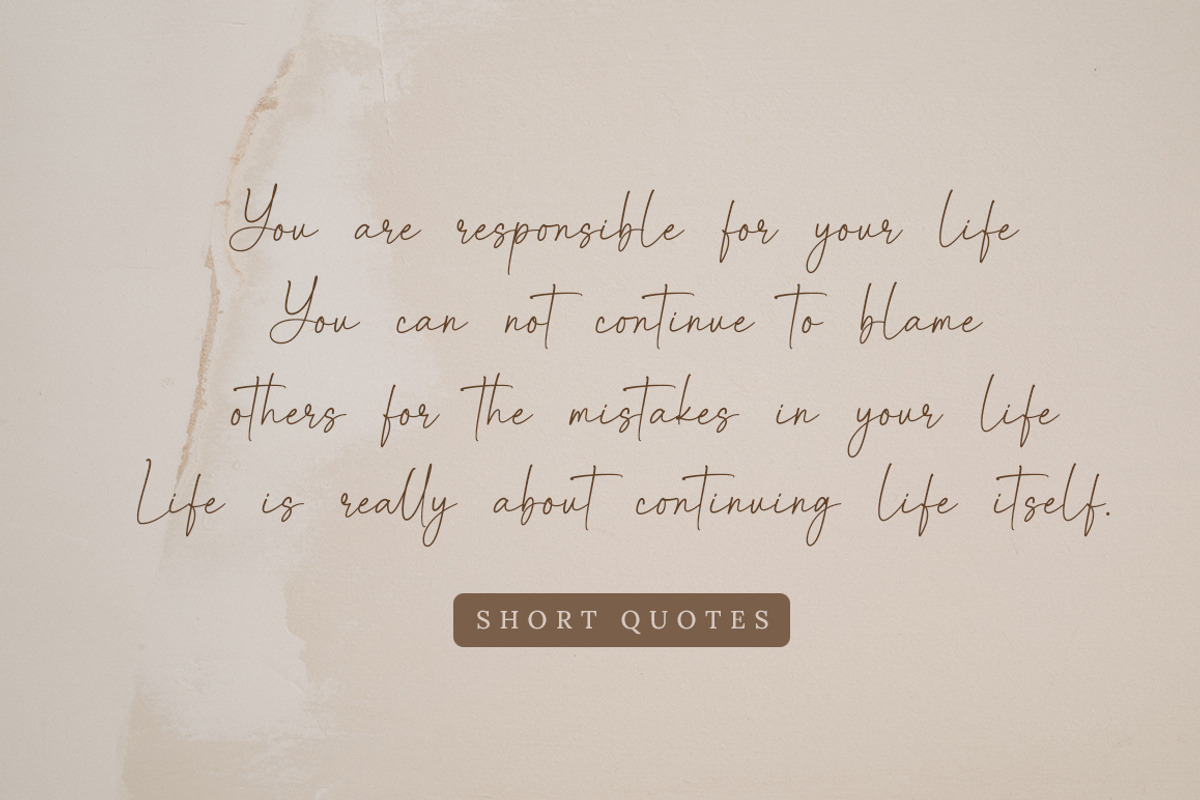 You are responsible for your life
You can not continue to blame
others for the mistakes in your life
Life is really about continuing life itself.
SHORT QUOTES